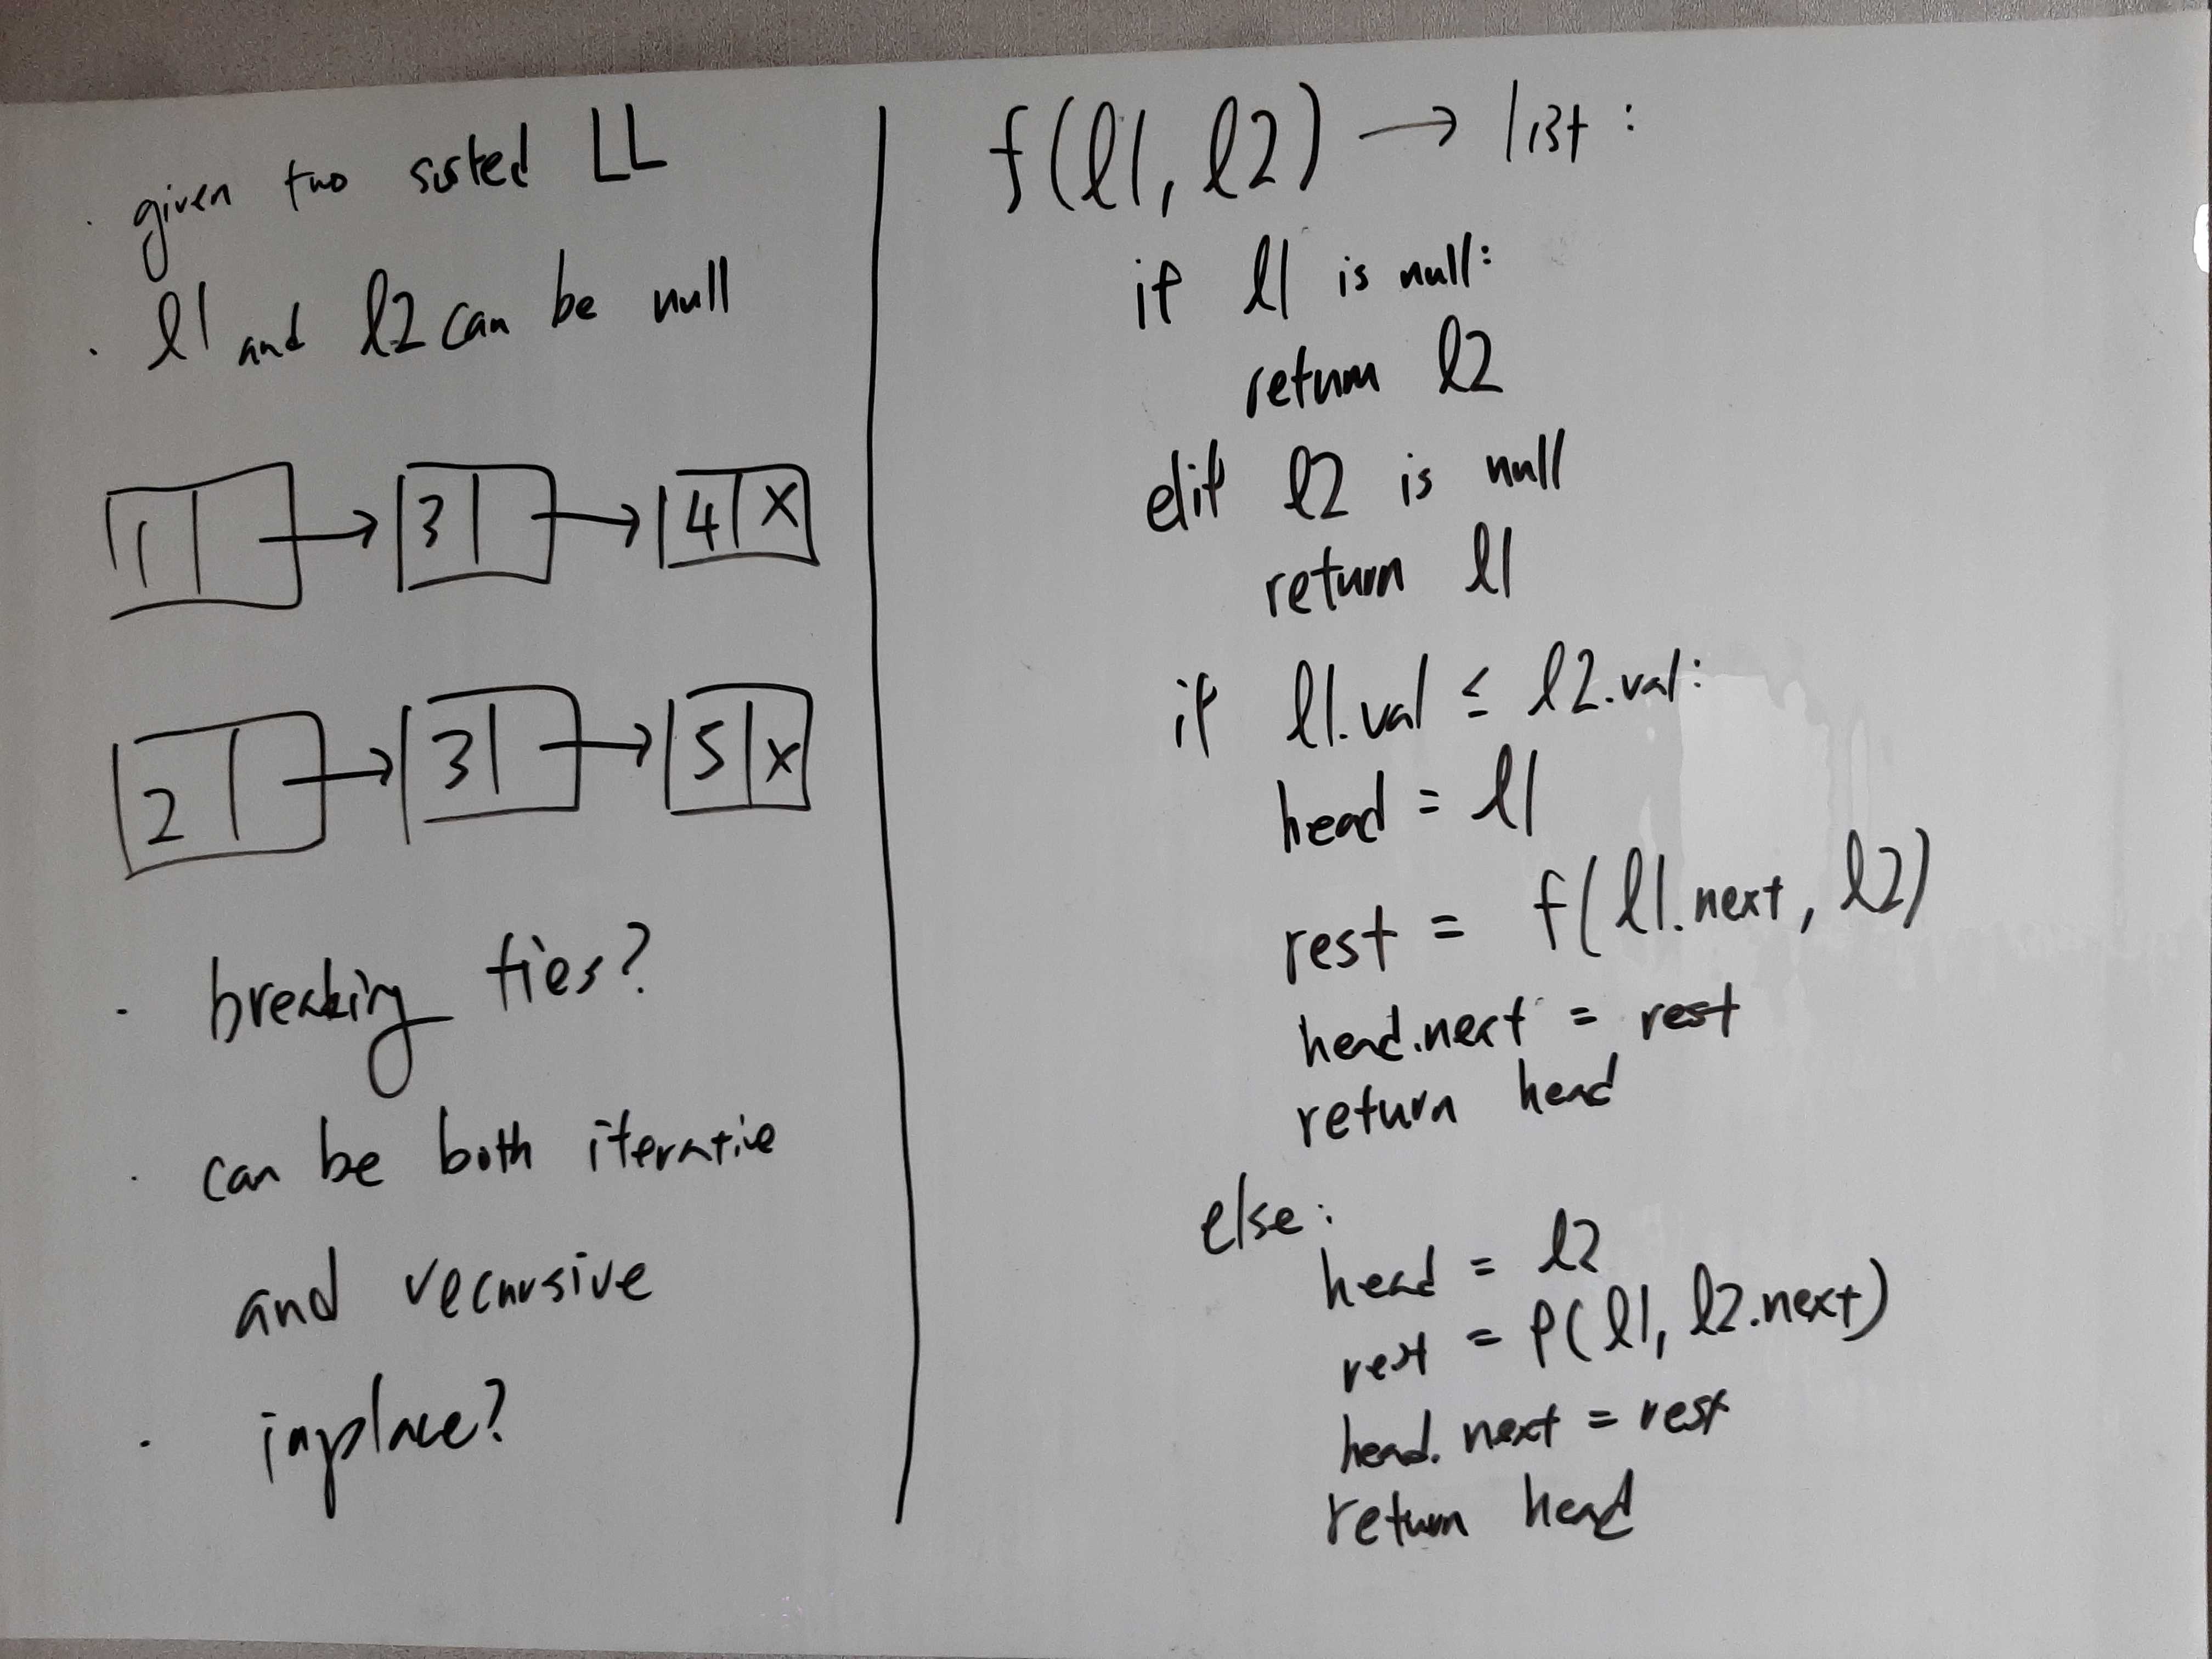 · given two sorted LL
· l1 and l2 can be null
1 3 4 X
2 3 5 X
· breaking ties?
· can be both iterative
and recursive
· inplace?
f(l1, l2) → list:
if l1 is null:
return l2
elif l2 is null
return l1
if l1.val ≤ l2.val:
head = l1
rest = f(l1.next, l2)
head.next = rest
return head
else:
head = l2
rest = f(l1, l2.next)
head.next = rest
return head